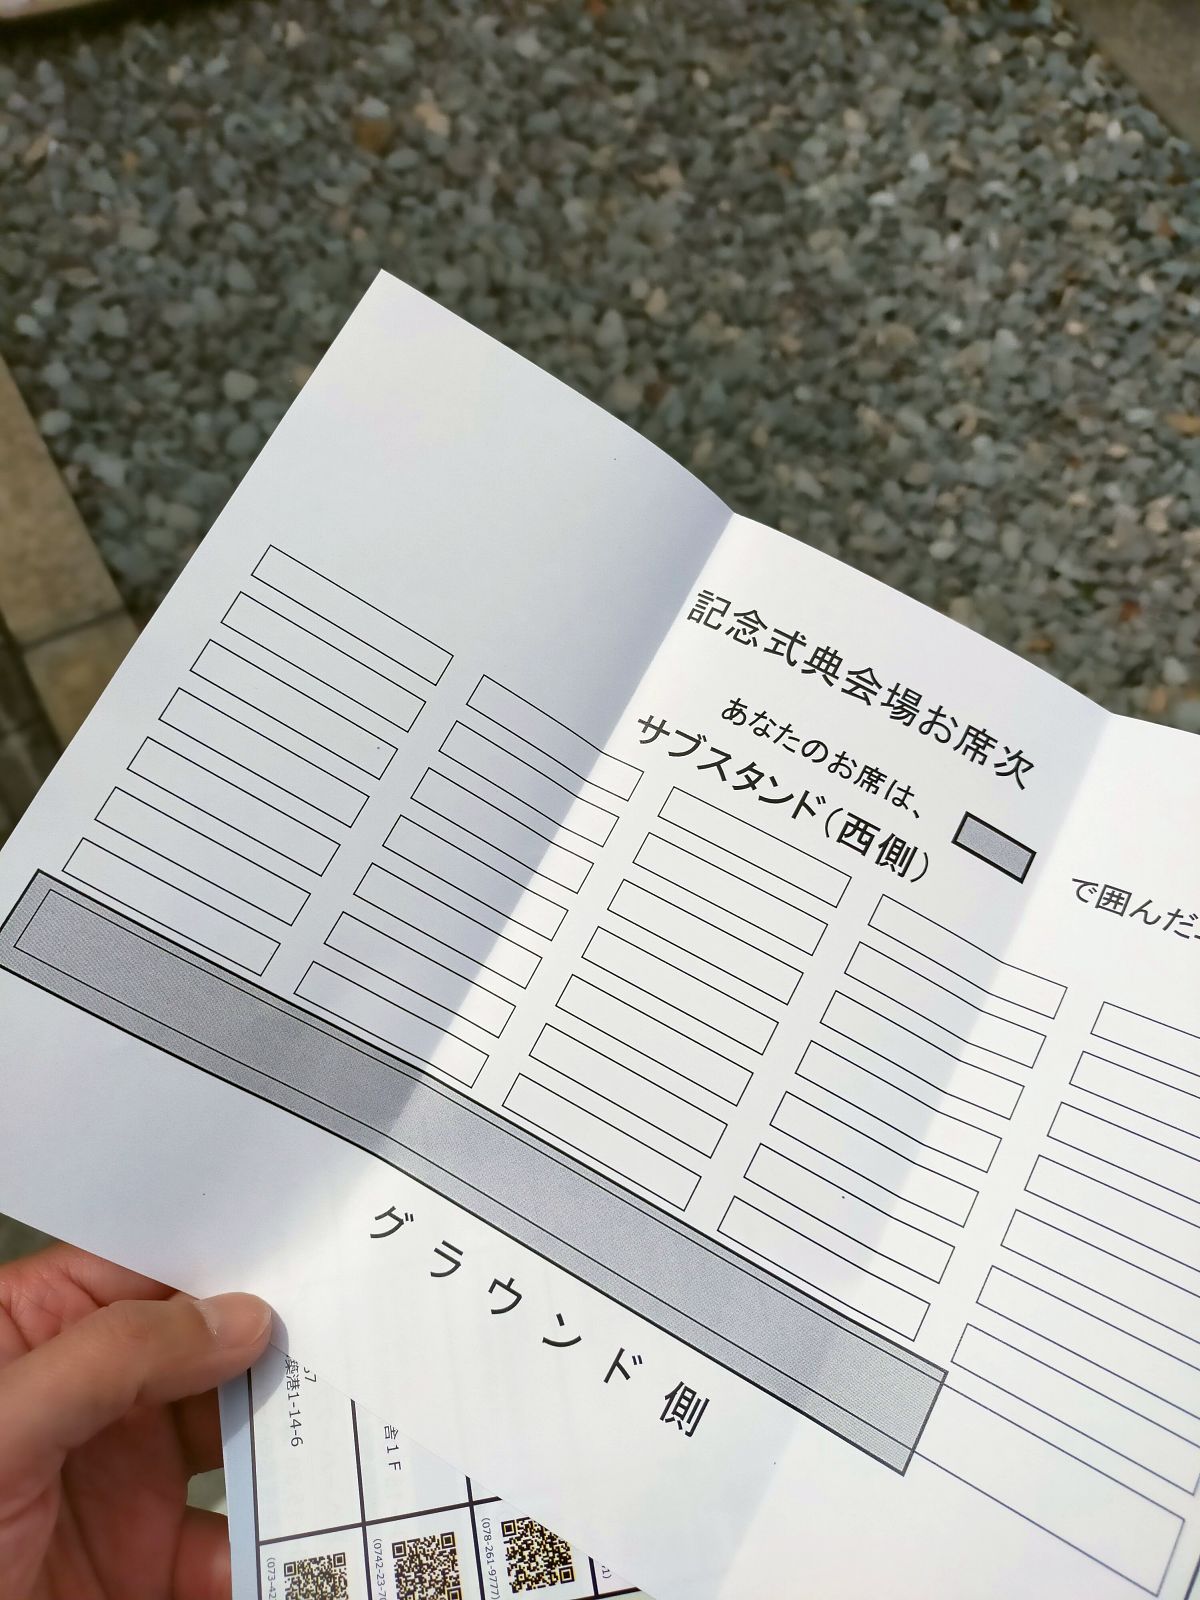 記念式典会場お席次
あなたのお席は、
サブスタンド(西側)
で囲んだ
グラウンド側
築港1-14-6
舎1F
(078-261-9777)